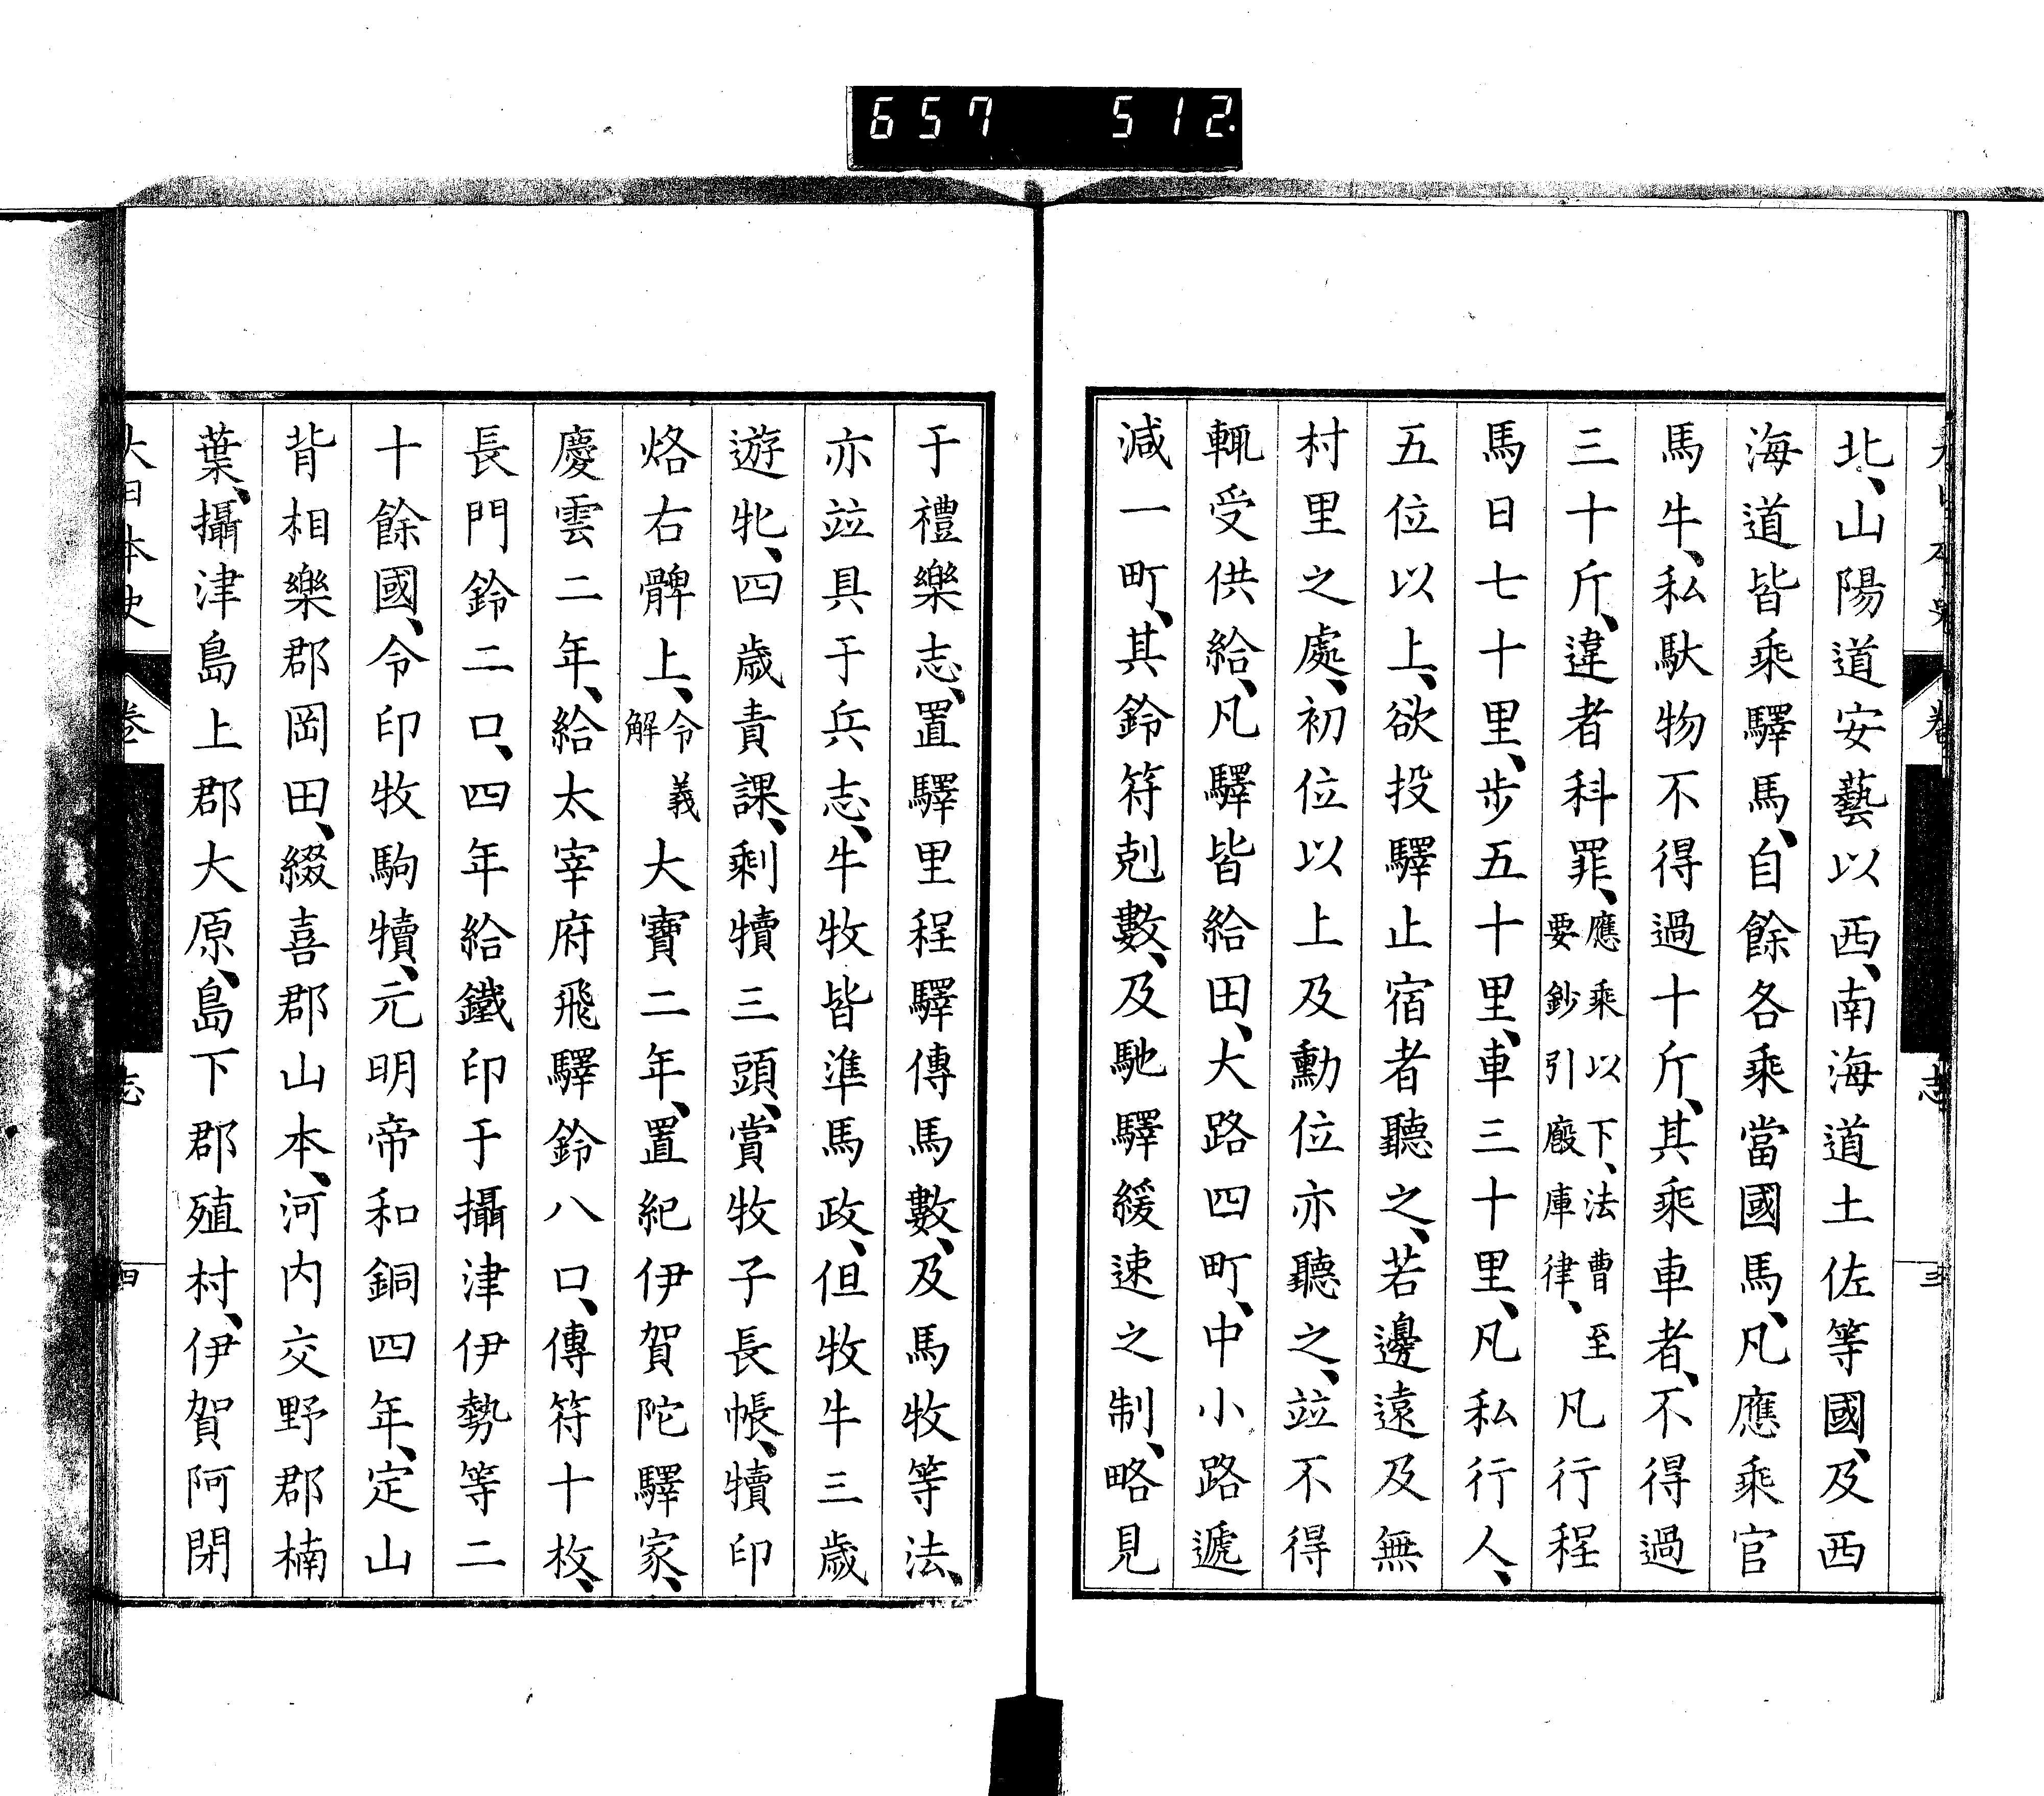 657 512.
北、山陽道安藝以西、南海道土佐等國、及西
海道皆乘驛馬、自餘各乘當國馬、凡應乘官
馬牛、私馱物不得過十斤、其乘車者、不得過
三十斤、違者科罪、應乘以下、法曹至要鈔引廄庫律、凡行程
馬日七十里、步五十里、車三十里、凡私行人、
五位以上、欲投驛止宿者聽之、若邊遠及無
村里之處、初位以上及勳位亦聽之、竝不得
輒受供給、凡驛皆給田、大路四町、中小路遞
減一町、其鈴符剋數、及馳驛緩速之制、略見
于禮樂志、置驛里程驛傳馬數、及馬牧等法、
亦竝具于兵志、牛牧皆準馬政、但牧牛三歲
遊牝、四歲責課、剩犢三頭、賞牧子長帳、犢印
烙右髀上、令義解大寶二年、置紀伊賀陀驛家、
慶雲二年、給太宰府飛驛鈴八口、傳符十枚、
長門鈴二口、四年給鐵印于攝津伊勢等二
十餘國、令印牧駒犢、元明帝和銅四年、定山
背相樂郡岡田、綴喜郡山本、河內交野郡楠
葉、攝津島上郡大原、島下郡殖村、伊賀阿閉
大日本史 卷 志 四